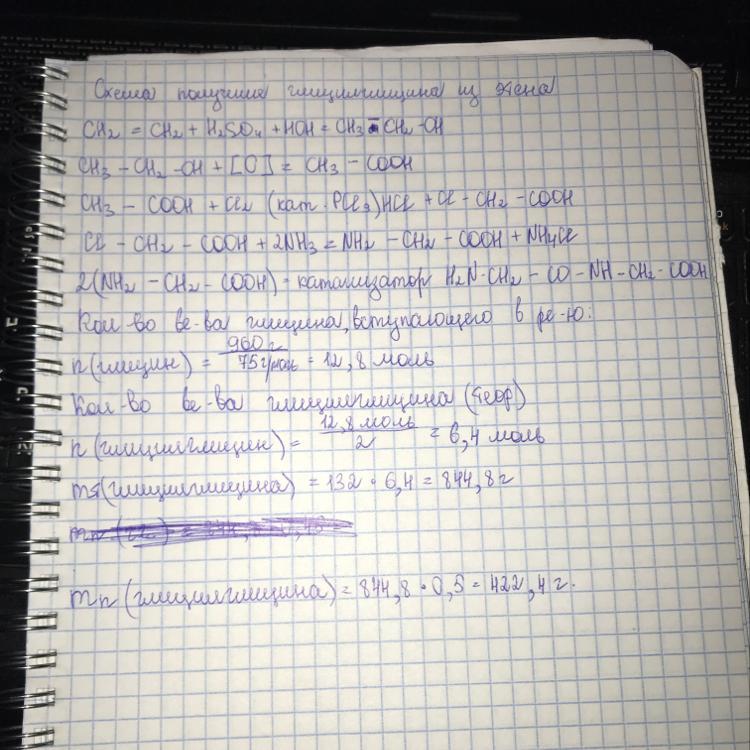 Схема получения глицилглицина из этена
CH2 = CH2 + H2SO4 + HOH = CH3 - CH2 - OH
CH3 - CH2 - OH + [O] = CH3 - COOH
CH3 - COOH + Cl2 (кат. PCl3) HCl + Cl - CH2 - COOH
Cl - CH2 - COOH + 2NH3 = NH2 - CH2 - COOH + NH4Cl
2(NH2 - CH2 - COOH) - катализатор H2N-CH2 - CO - NH - CH2 - COOH
Кол-во ве-ва глицина, вступающего в ре-ю:
n(глицин) = 960 г / 75 г/моль = 12,8 моль
Кол-во ве-ва глицилглицина (теор)
n(глицилглицин) = 12,8 моль / 2 = 6,4 моль
mт(глицилглицина) = 132 · 6,4 = 844,8 г
mп(глицилглицина) = 844,8 · 0,5 = 422,4 г.